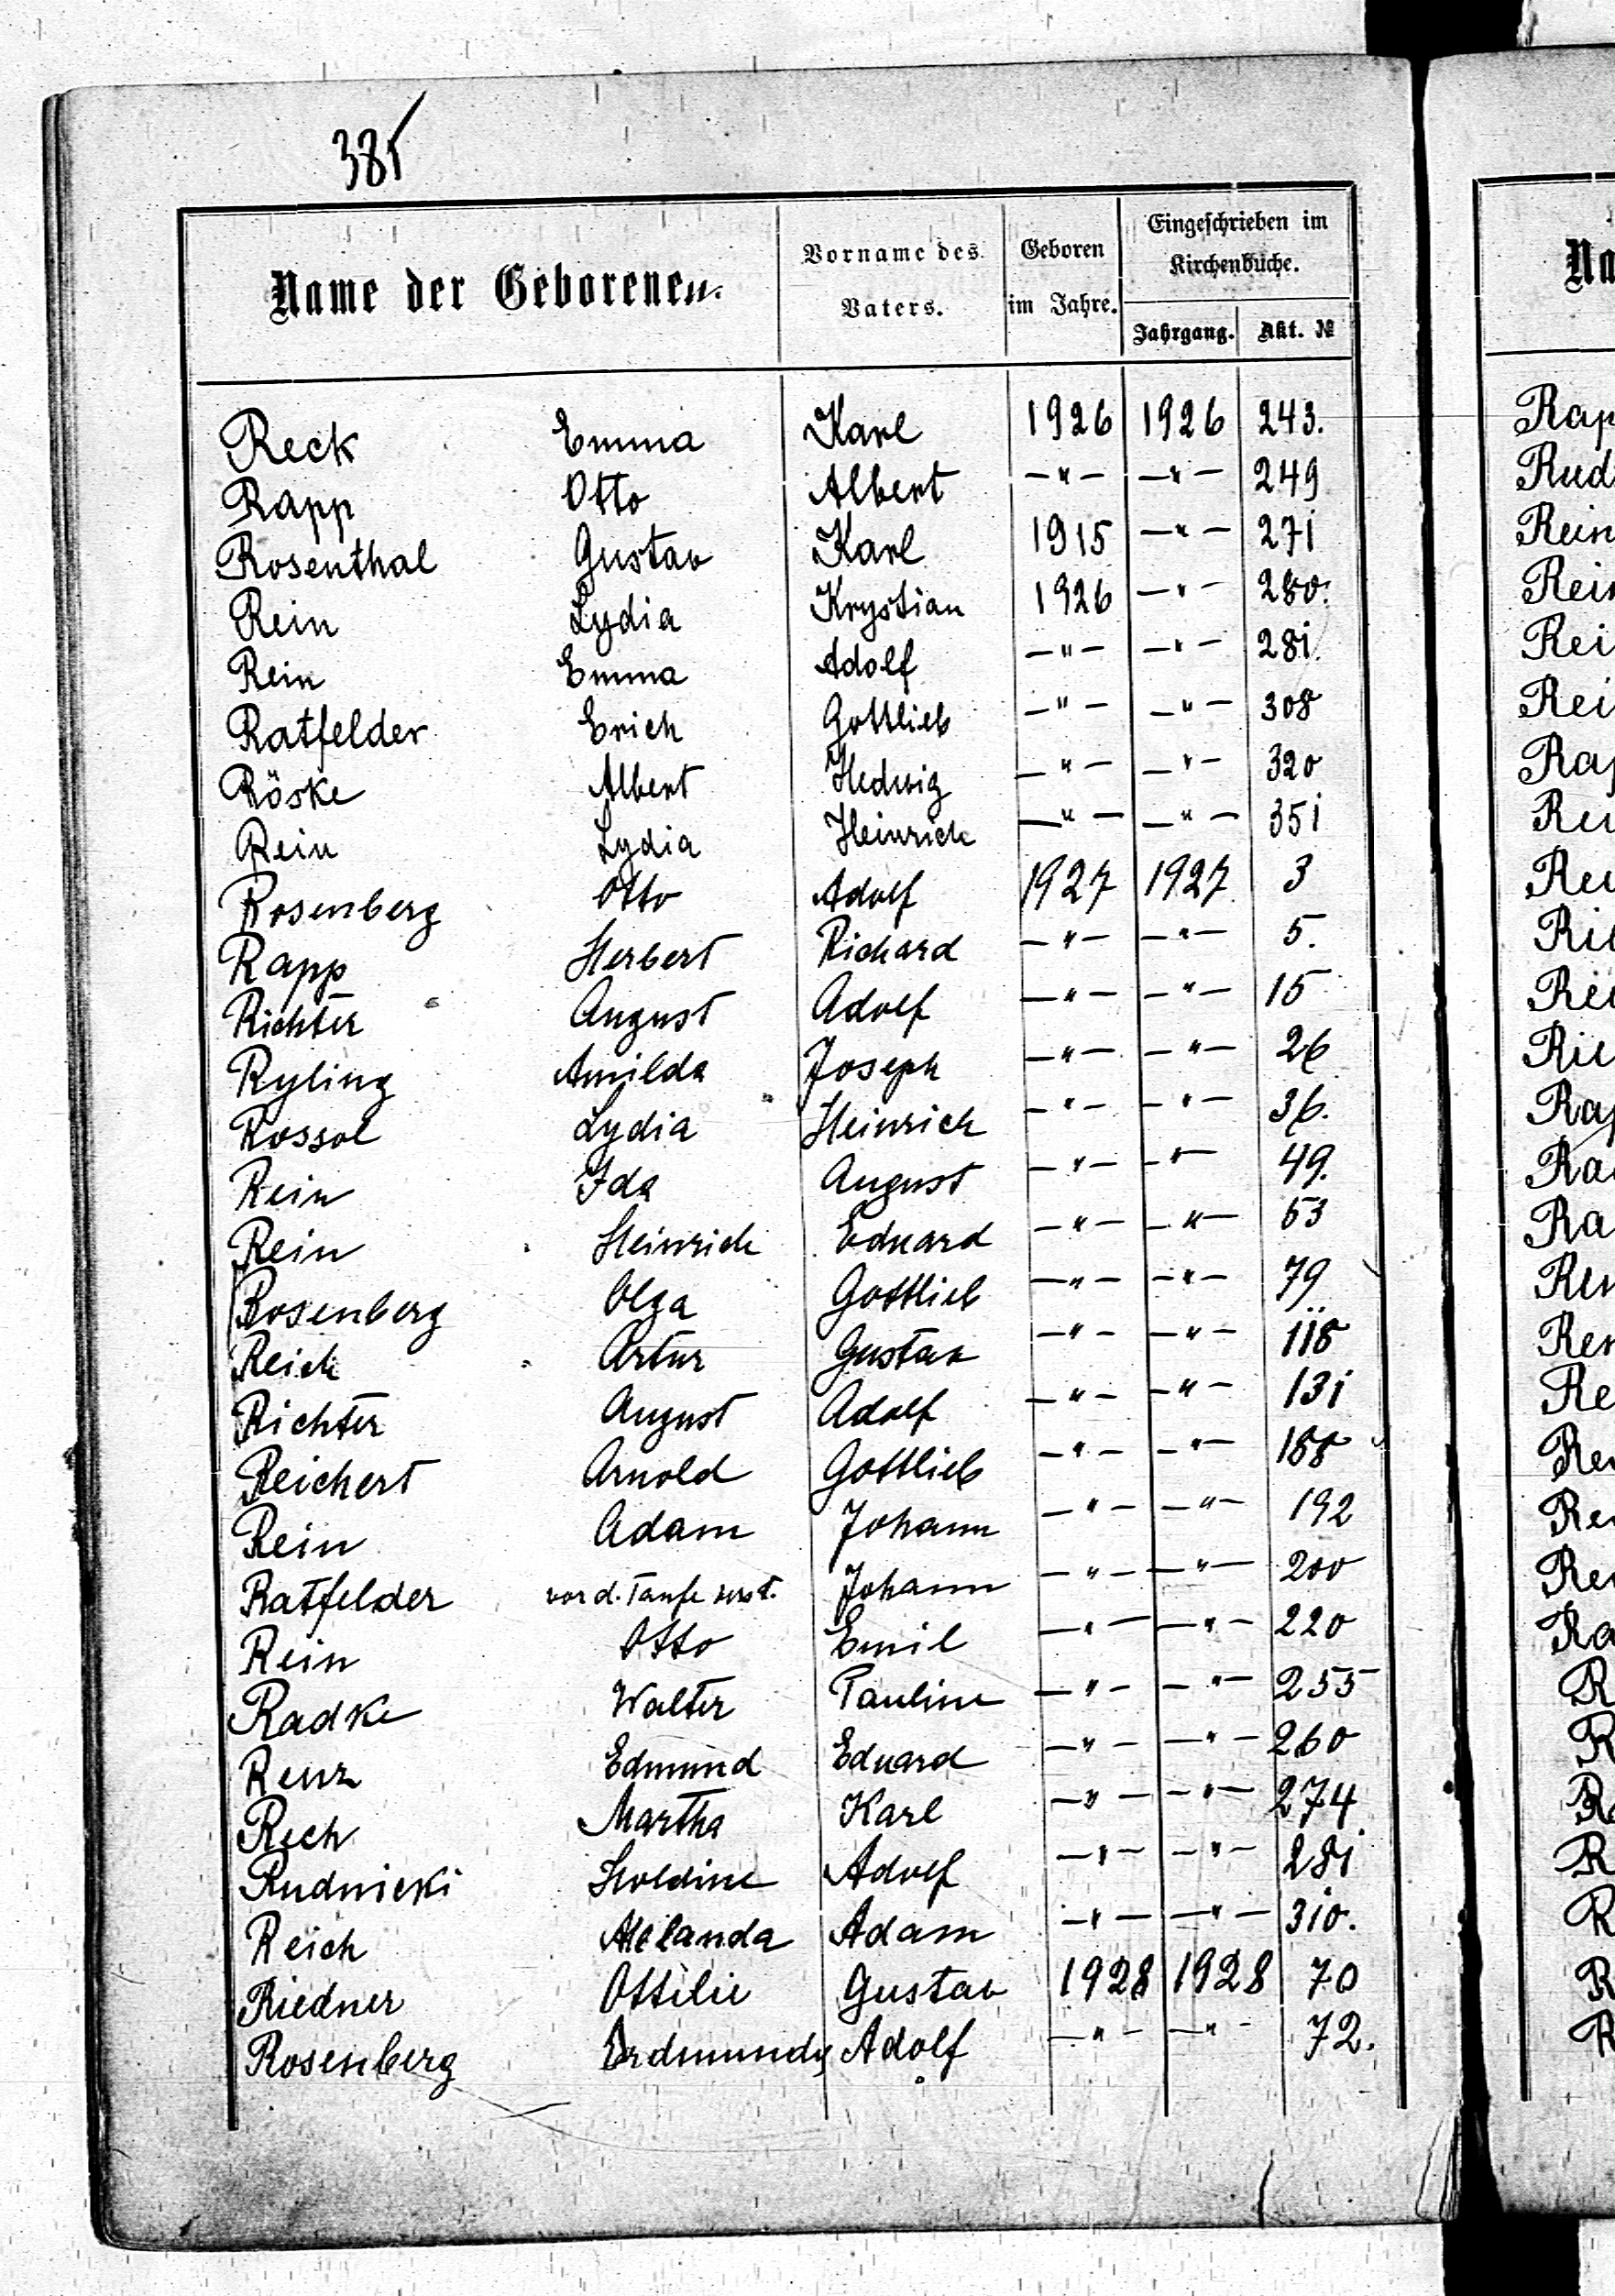 385
Name der Geborenen. Vorname des Vaters. Geboren im Jahre. Eingeschrieben im Kirchenbuche. Jahrgang. Akt. №
Reck Emma Karl 1926 1926 243.
Rapp Otto Albert —"— —"— 249
Rosenthal Gustav Karl 1915 —"— 271
Rein Lydia Krystian 1926 —"— 280.
Rein Emma Adolf —"— —"— 281.
Ratfelder Erich Gottlieb —"— —"— 308
Röske Albert Hedwig —"— —"— 320
Rein Lydia Heinrich —"— —"— 351
Rosenberg Otto Adolf 1927 1927 3
Rapp Herbert Richard —"— —"— 5.
Richter August Adolf —"— —"— 15
Ryling Amilda Joseph —"— —"— 26
Rossol Lydia Heinrich —"— —"— 36.
Rein Ida August —"— —"— 49.
Rein Heinrich Eduard —"— —"— 53
Rosenberg Olga Gottlieb —"— —"— 79
Reich Artur Gustav —"— —"— 118
Richter August Adolf —"— —"— 131
Reichert Arnold Gottlieb —"— —"— 188
Rein Adam Johann —"— —"— 192
Ratfelder vor d. Taufe verst. Johann —"— —"— 200
Rein Otto Emil —"— —"— 220
Radke Walter Pauline —"— —"— 255
Renz Edmund Eduard —"— —"— 260
Rech Martha Karl —"— —"— 274
Rudnicki Holdine Adolf —"— —"— 281
Reich Adam —"— —"— 310.
Riedner Ottilie Gustav 1928 1928 70
Rosenberg Adolf —"— —"— 72.
Na
Rap
Rud
Rein
Rein
Rei
Rei
Rap